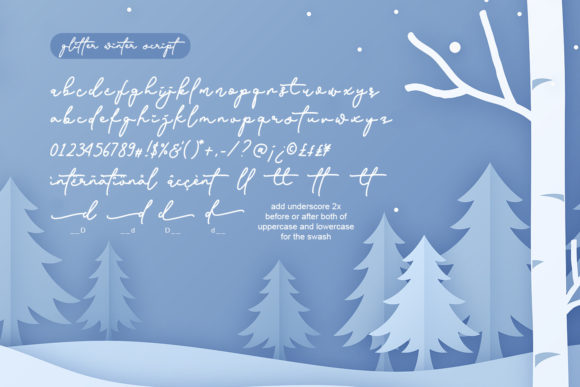 glitter winter script
abcdefghijklmnopqrstuvwxyz
abcdefghijklmnopqrstuvwxyz
0123456789#!$%&'()*+,-/?@¡¿©£
international àccènt ll tt ff tt
d d d d
add underscore 2x
before or after both of
uppercase and lowercase
for the swash
__D __d D__ d__